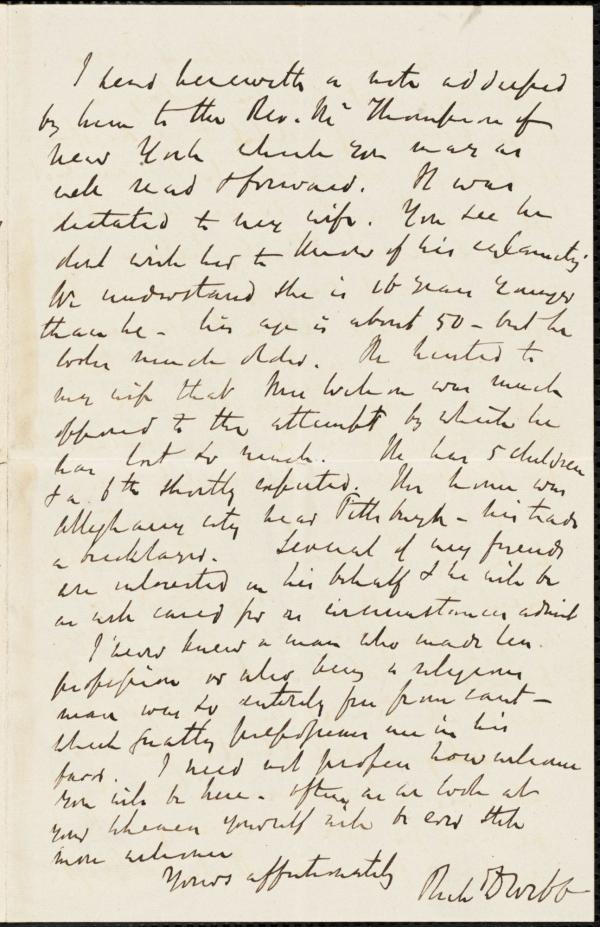 I send herewith a note addressed
by him to the Rev. Mr Thompson of
New York which you may as
well read & forward. It was
dictated to my wife. You see he
dont wish her to know of his calamity.
We understand she is 16 years younger
than he - his age is about 50 - but he
looks much older. He hinted to
my wife that Mrs was much
opposed to the attempt by which he
has lost so much. He has 5 children
& a 6th shortly expected. His home was
Alleghany city near Pittsburgh - his trade
a bricklayer. Several of my friends
are interested in his behalf & he will be
as well cared for as circumstances admit
I never knew a man who made less
profession or who being a religious
man was so entirely free from cant -
which greatly prepossesses me in his
favor. I need not profess how welcome
you will be here - often as we look at
your yourself will be ever still
more welcome
Yours affectionately Richd D Webb